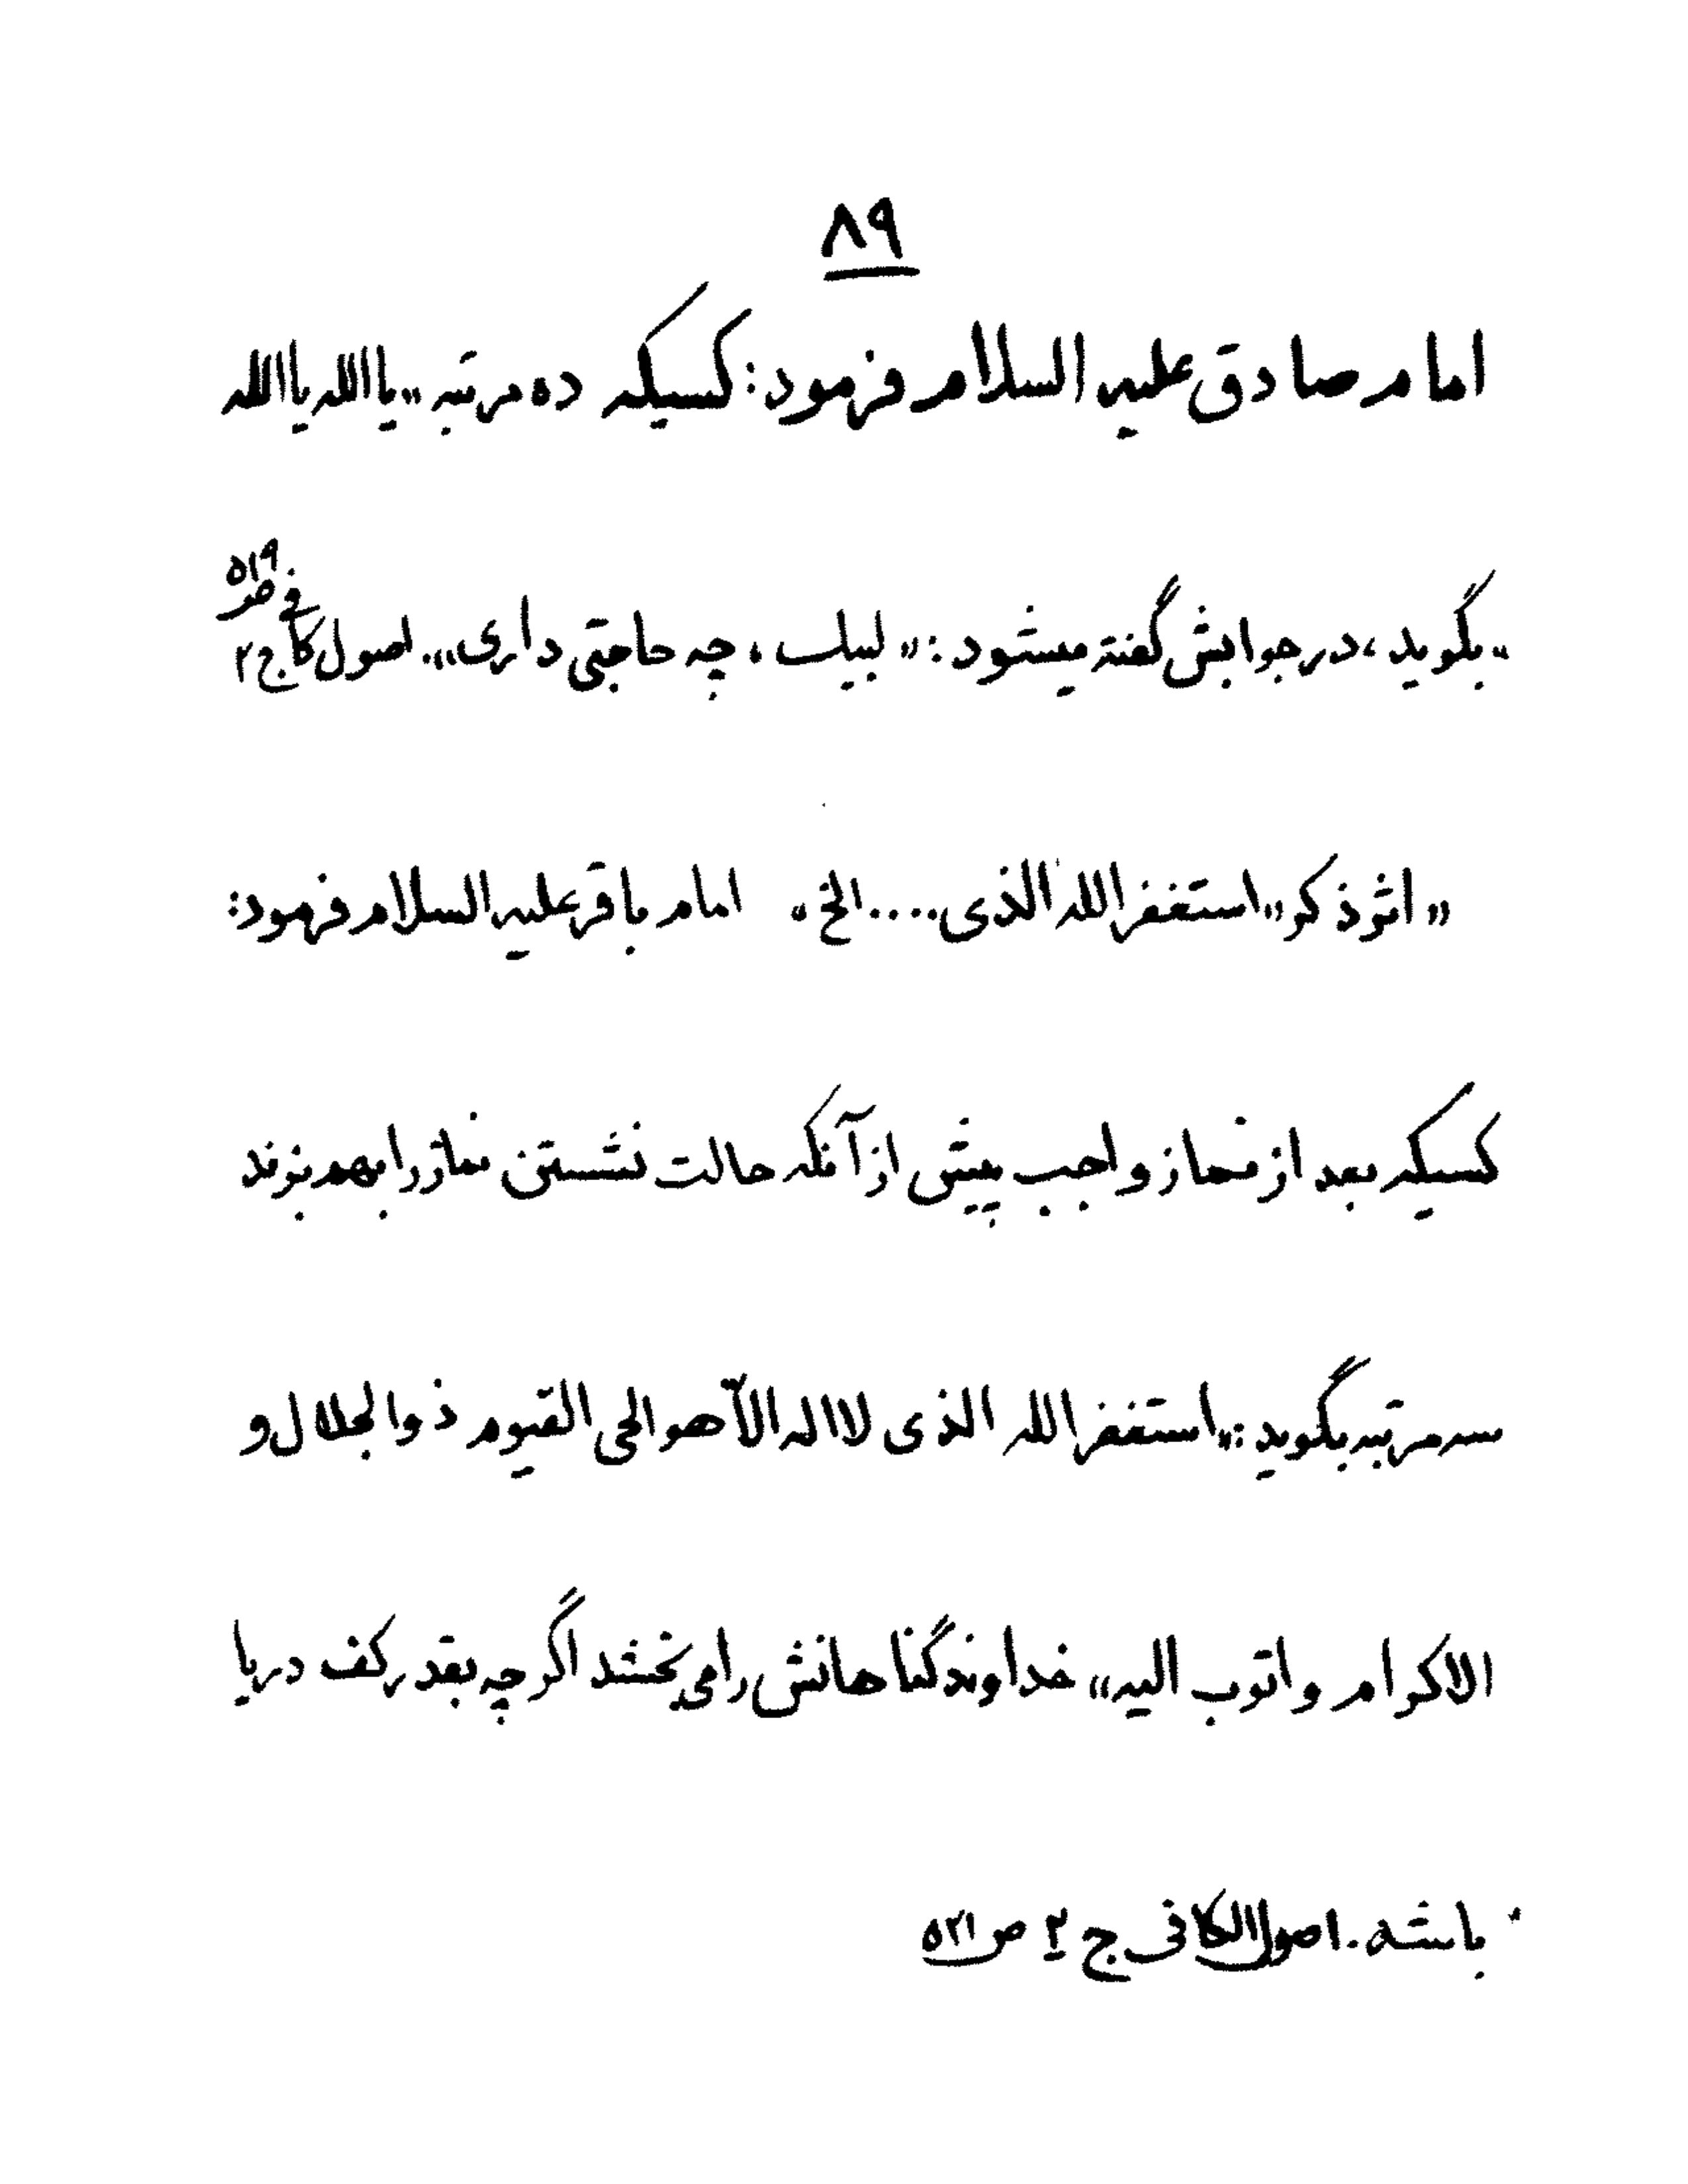 ۸۹
امام صادق علیه السلام فرمود: کسیکه ده مرتبه «یا الله یا الله
» بگوید، در جوابش گفته میشود: «لبیک، چه حاجتی داری». اصول کافی ج۲ ص۵۱۹
« اثر ذکر «استغفر الله الذی .... الخ » امام باقر علیه السلام فرمود:
کسیکه بعد از نماز واجب پیش از آنکه حالت نشستن نماز را بهم بزند
سه مرتبه بگوید: «استغفر الله الذی لا اله الّا هو الحی القیوم ذو الجلال و
الاکرام و اتوب الیه» خداوند گناهانش را می بخشد اگر چه بقدر کف دریا
باشد. اصول الکافی ج ۲ ص ۵۲۱